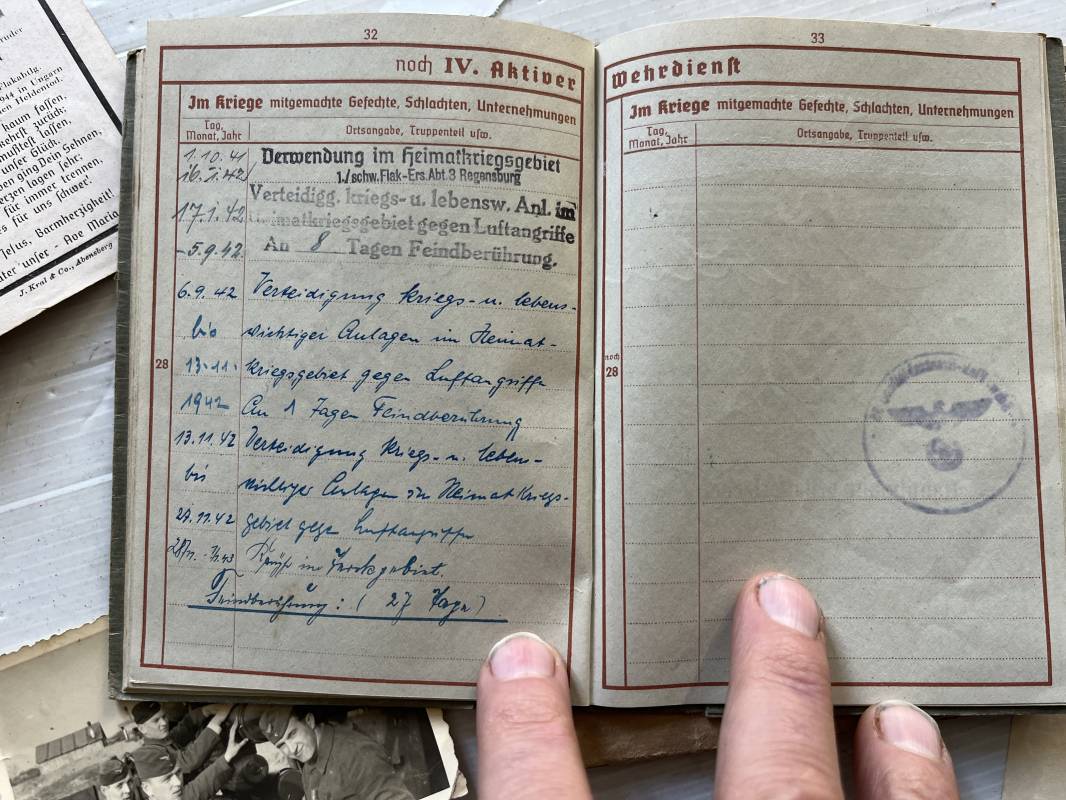 ruder
Flakabtlg.
944 in Ungarn
den Heldentod.
kaum fassen,
kehrst zurück;
mußtest lassen,
unser Glück.
ben ging Dein Sehnen,
erzen lagen sehr;
für immer trennen,
es für uns schwer.
Jesus, Barmherzigheit!
ater unser - Ave Maria
J. Kral & Co., Abensberg
32
noch IV. Aktiver
Im Kriege mitgemachte Gefechte, Schlachten, Unternehmungen
Tag, Monat, Jahr
Ortsangabe, Truppenteil usw.
1.10.41 Verwendung im Heimatkriegsgebiet
16.1.42 1./schw.Flak-Ers.Abt.3 Regensburg
Verteidigg. kriegs- u. lebensw. Anl. im
17.1.42 Heimatkriegsgebiet gegen Luftangriffe
-5.9.42 An 8 Tagen Feindberührung.
6.9.42 Verteidigung kriegs- u. lebens-
bis wichtiger Anlagen im Heimat-
28
13.11. kriegsgebiet gegen Luftangriffe
1942 An 1 Tagen Feindberührung
13.11.42 Verteidigung kriegs- u. lebens-
bis wichtiger Anlagen im Heimatkriegs-
27.11.42 gebiet gegen Luftangriffe
Feindberührung: (27 Tage)
33
Wehrdienst
Im Kriege mitgemachte Gefechte, Schlachten, Unternehmungen
Tag, Monat, Jahr
Ortsangabe, Truppenteil usw.
noch
28